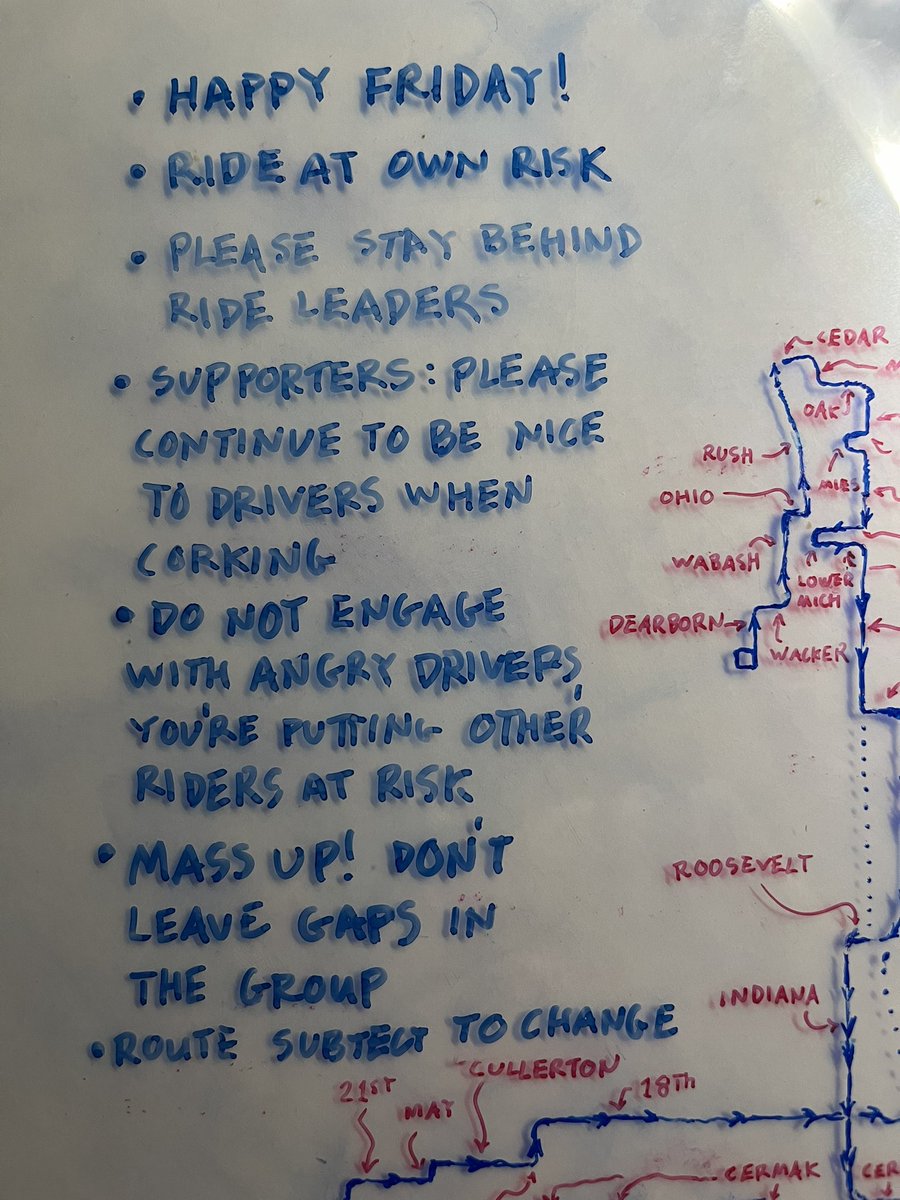 • HAPPY FRIDAY!
• RIDE AT OWN RISK
• PLEASE STAY BEHIND
RIDE LEADERS
• SUPPORTERS: PLEASE
CONTINUE TO BE NICE
TO DRIVERS WHEN
CORKING
• DO NOT ENGAGE
WITH ANGRY DRIVERS,
YOU'RE PUTTING OTHER
RIDERS AT RISK
• MASS UP! DON'T
LEAVE GAPS IN
THE GROUP
• ROUTE SUBTECT TO CHANGE
CEDAR
OAK
RUSH
MIES
OHIO
WABASH
LOWER
MICH
DEARBORN
WACKER
ROOSEVELT
INDIANA
CULLERTON
21ST
MAY
18TH
CERMAK